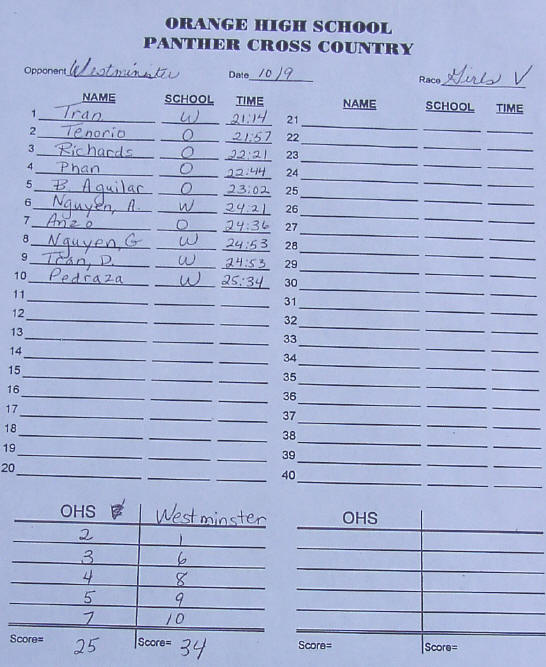 ORANGE HIGH SCHOOL
PANTHER CROSS COUNTRY
Opponent Westminister Date 10/9 Race Girls V
NAME SCHOOL TIME NAME SCHOOL TIME
1 Tran W 21:14 21
2 Tenorio O 21:57 22
3 Richards O 22:21 23
4 Phan O 22:44 24
5 B. Aguilar O 23:02 25
6 Nguyen, A. W 24:21 26
7 Anzo O 24:36 27
8 Nguyen, G W 24:53 28
9 Tran, D. W 24:53 29
10 Pedraza W 25:34 30
11 31
12 32
13 33
14 34
15 35
16 36
17 37
18 38
19 39
20 40
OHS Westminster OHS
2 1
3 6
4 8
5 9
7 10
Score= 25 Score= 34 Score= Score=